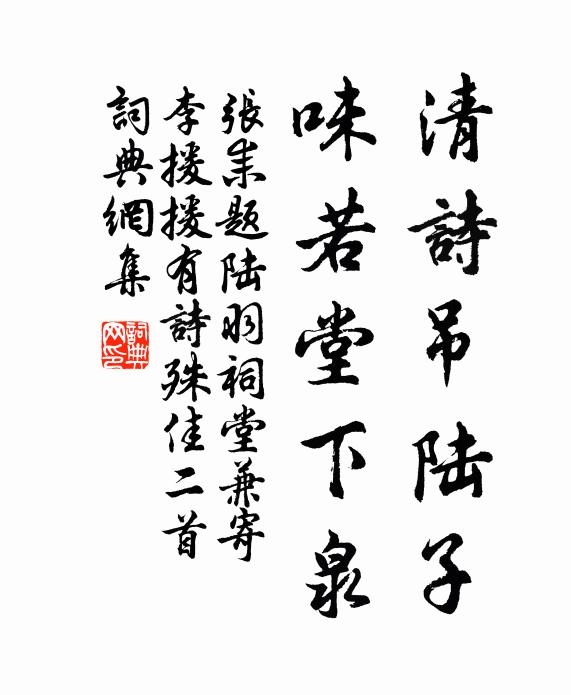 清詩吊陆子
味若堂下泉
張耒題陆羽祠堂兼寄
李援援有詩殊佳二首
詞典網集
詞典
网印